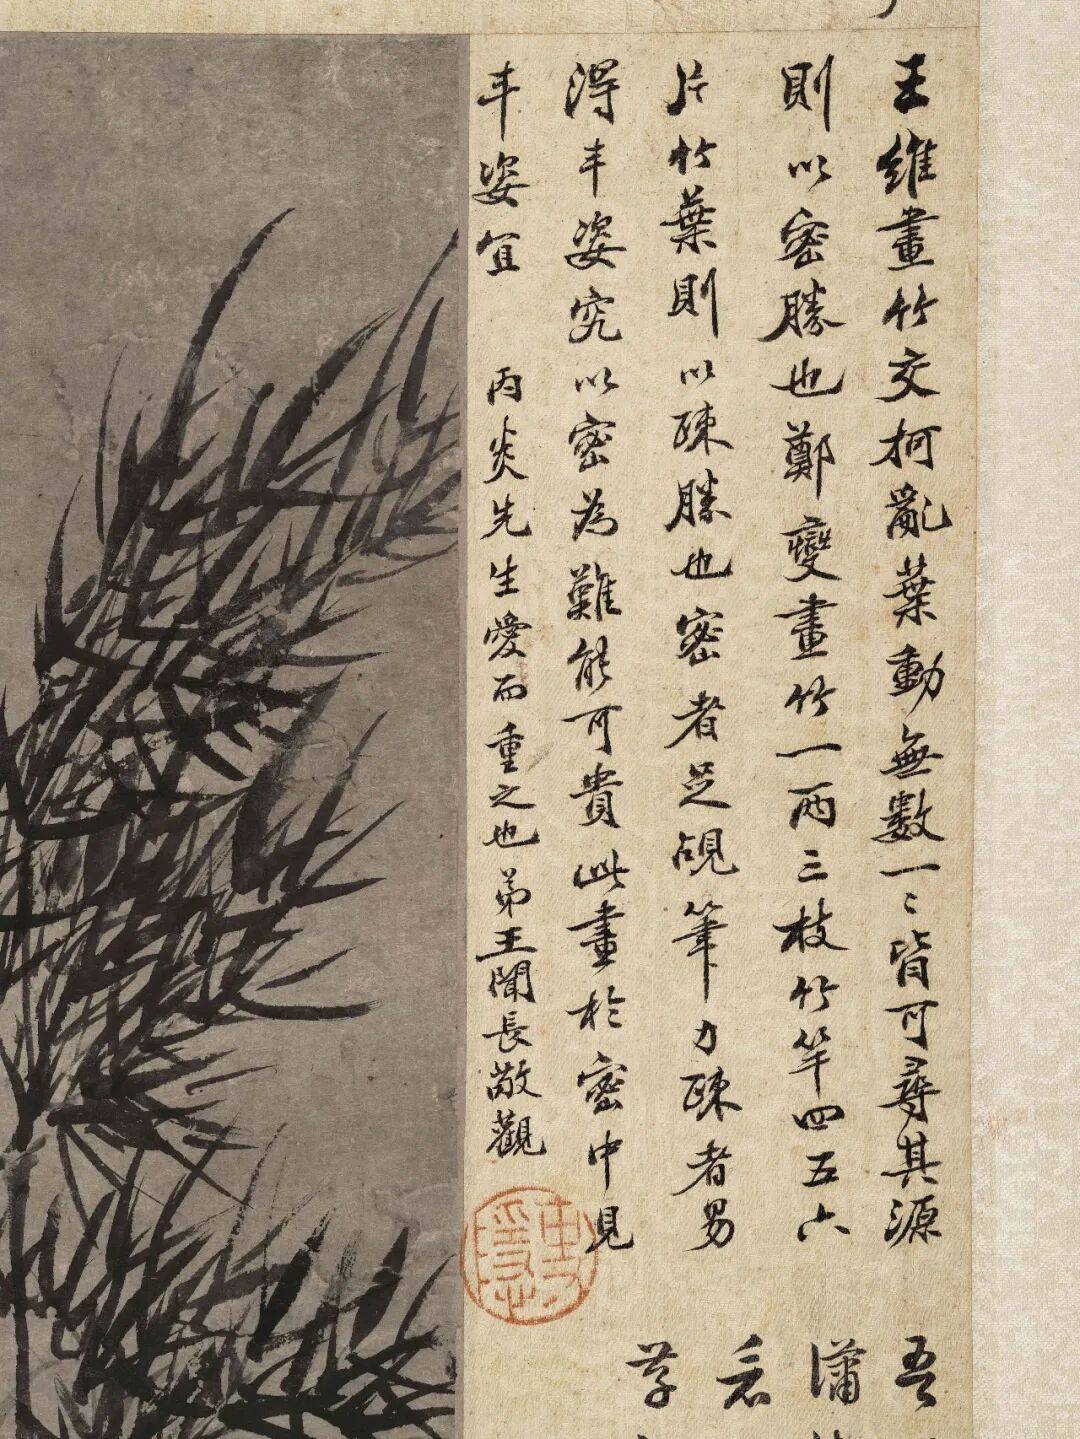 王維畫竹交柯亂葉動無數一〻皆可尋其源
則以密勝也鄭燮畫竹一兩三枝竹竿四五六
片竹葉則以疎勝也密者足覘筆力疎者易
得丰姿究以密為難能可貴此畫於密中見
丰姿宜
丙炎先生愛而重之也弟王聞長敬觀
吾
瀟